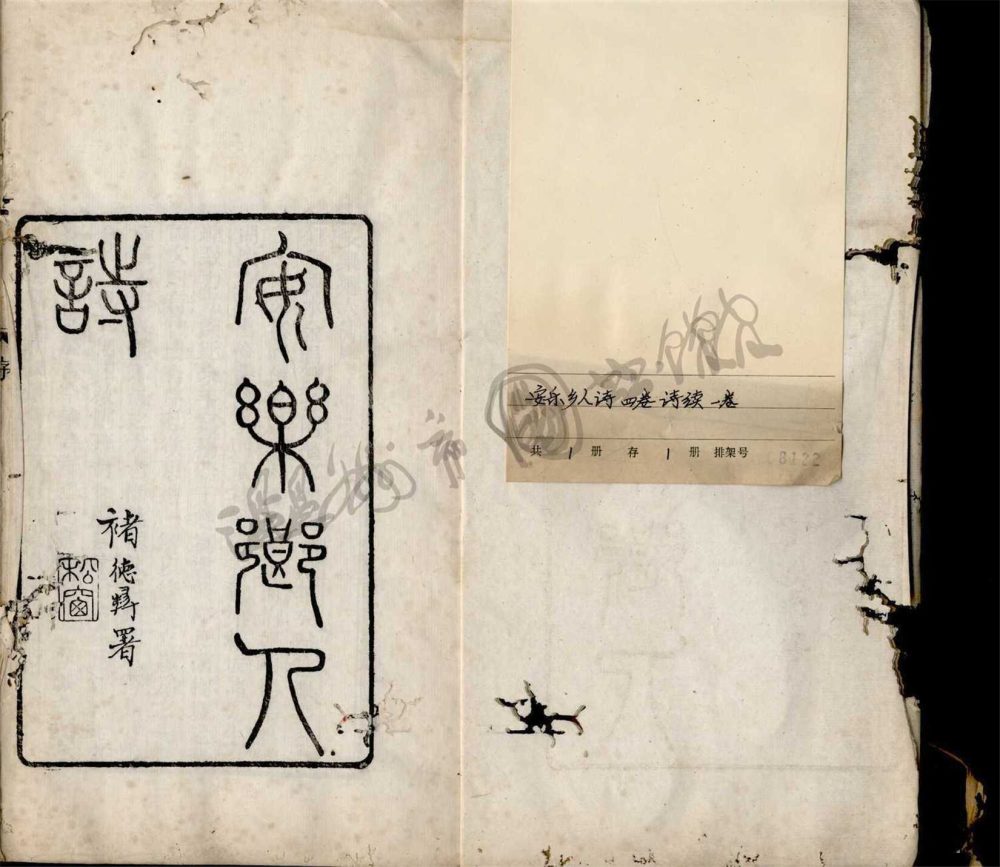 安乐乡人诗 四卷 诗续一卷
共 1 册 存 1 册 排架号 8122
安樂鄉人
詩
褚德彝署
松窗